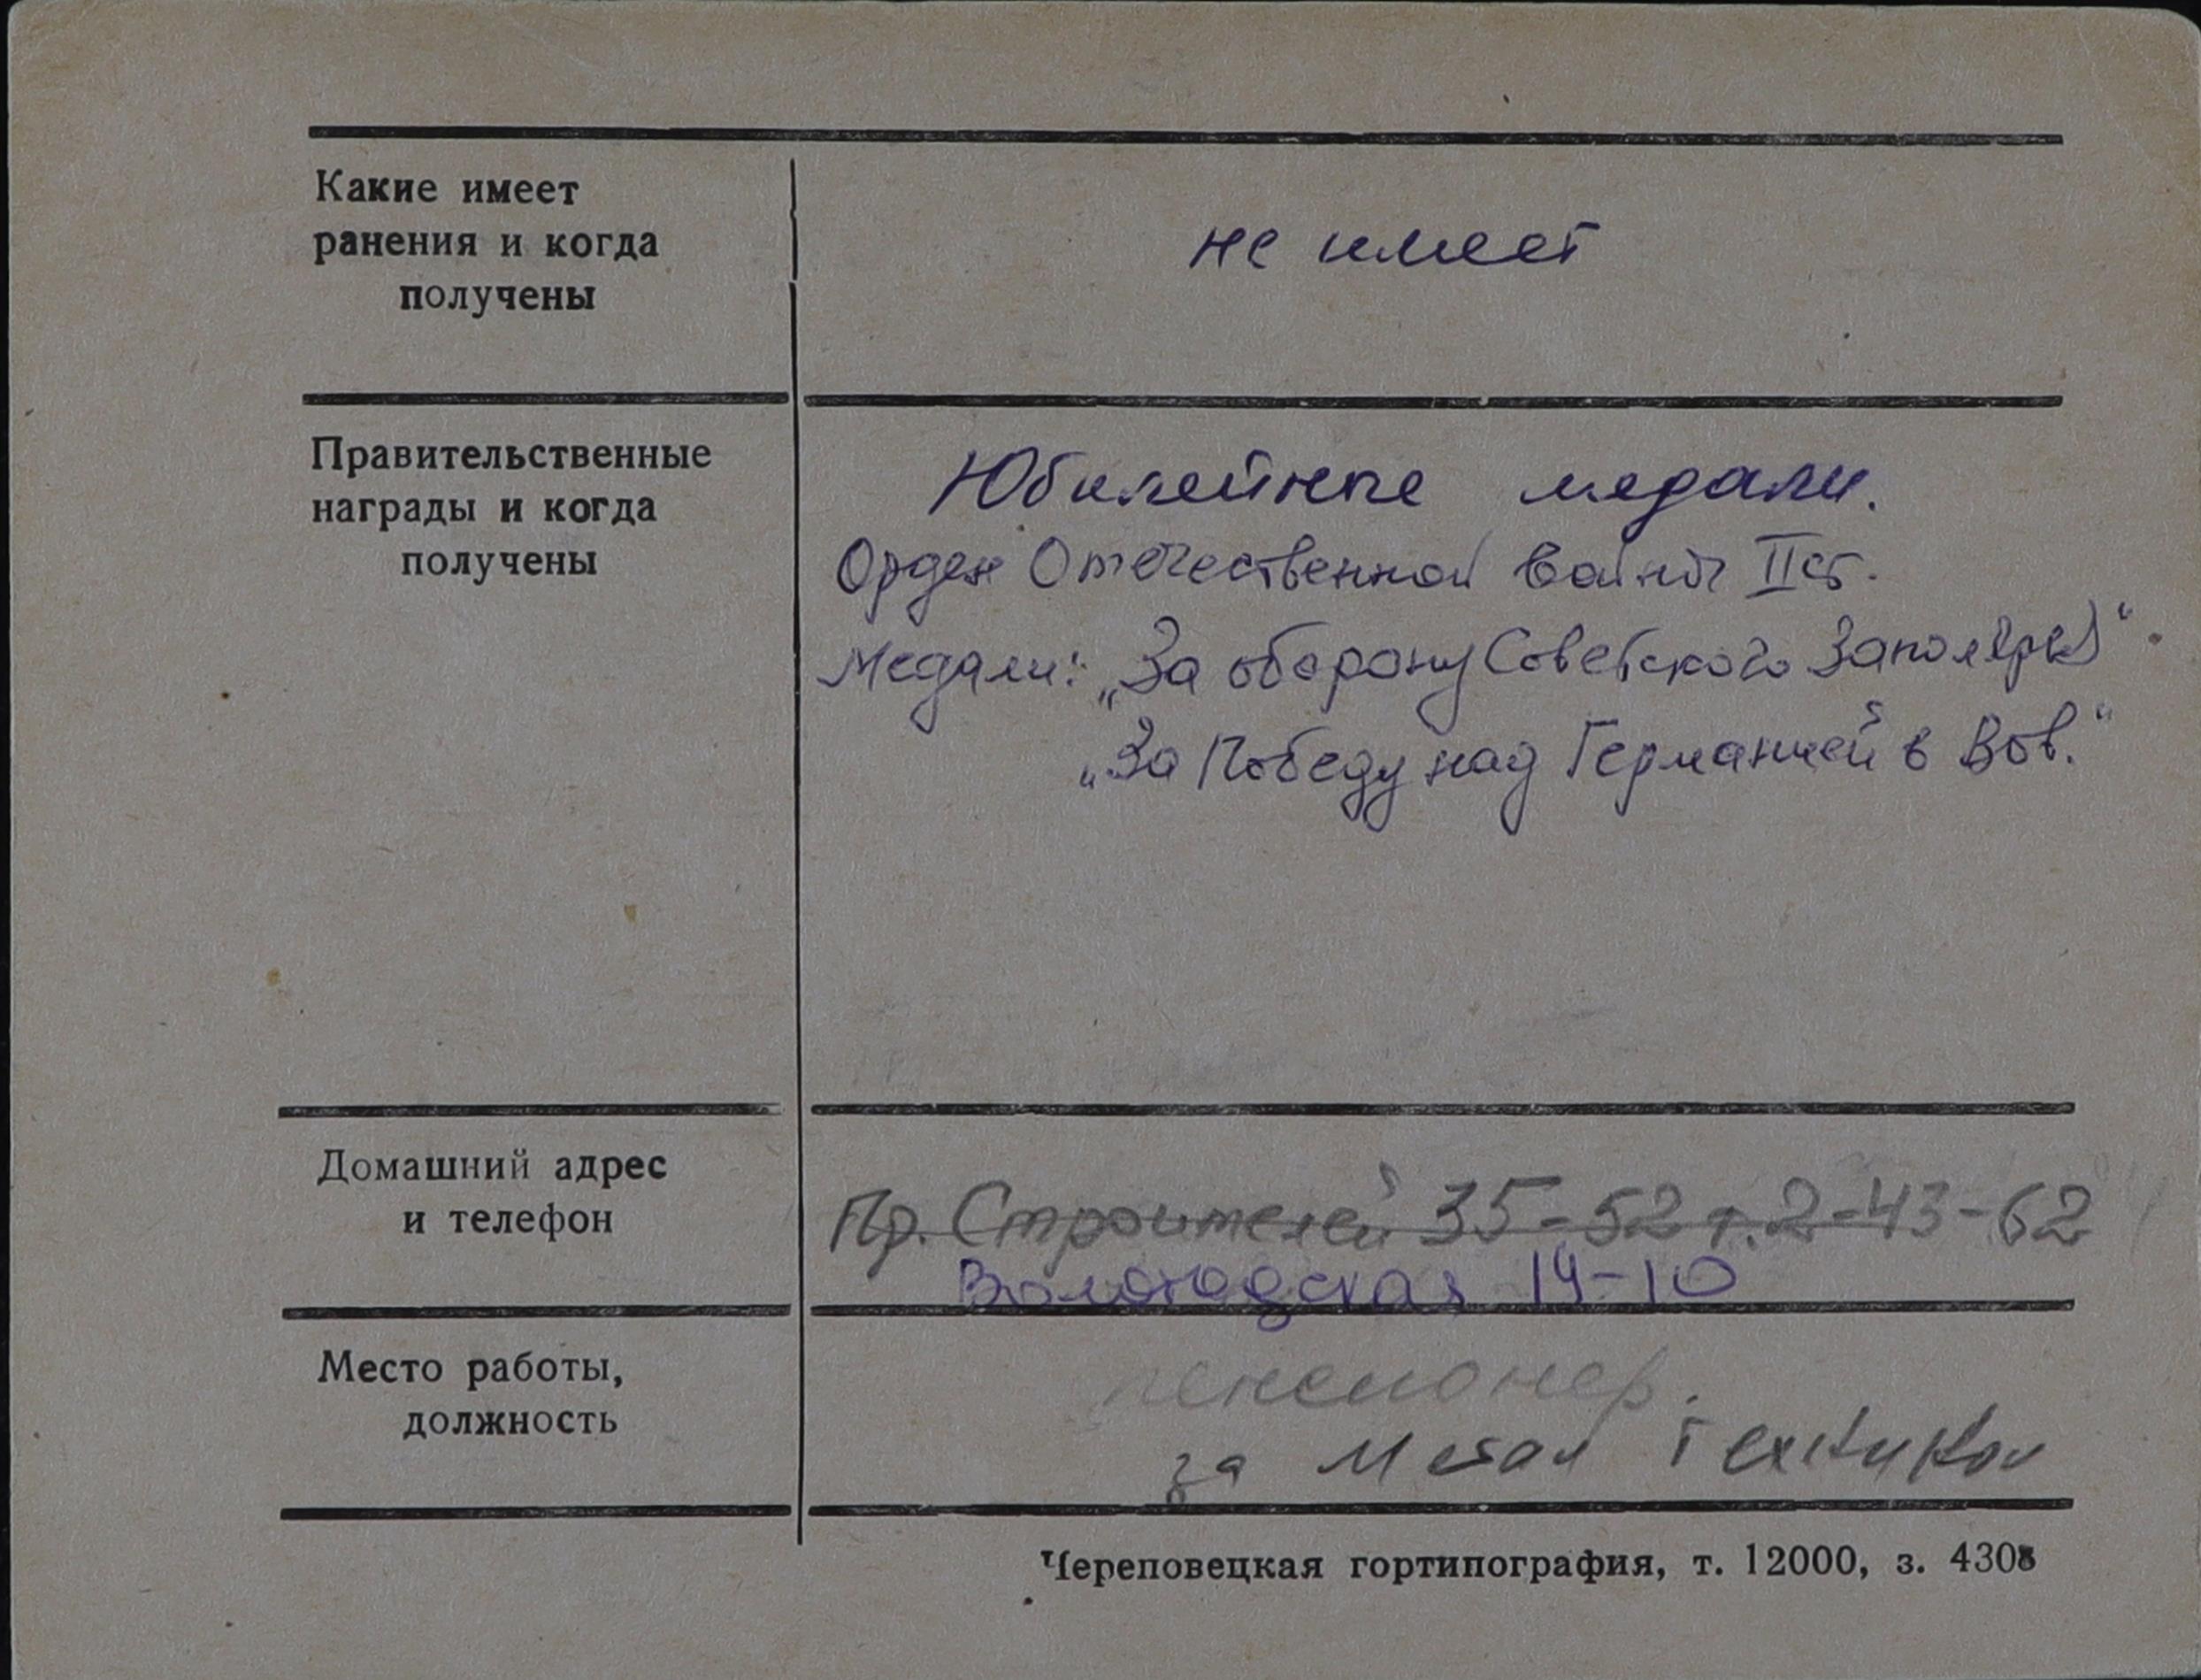 Какие имеет
ранения и когда
получены
не имеет
Правительственные
награды и когда
получены
Юбилейные медали.
Орден Отечественной Войны II ст.
Медали: „За оборону Советского Заполярья"
„За Победу над Германией в Вов."
Домашний адрес
и телефон
Пр. Строителей 35-52 т. 2-43-62
Вологодская 14-10
Место работы,
должность
пенсионер.
за Метал Техником
Череповецкая гортипография, т. 12000, з. 4308